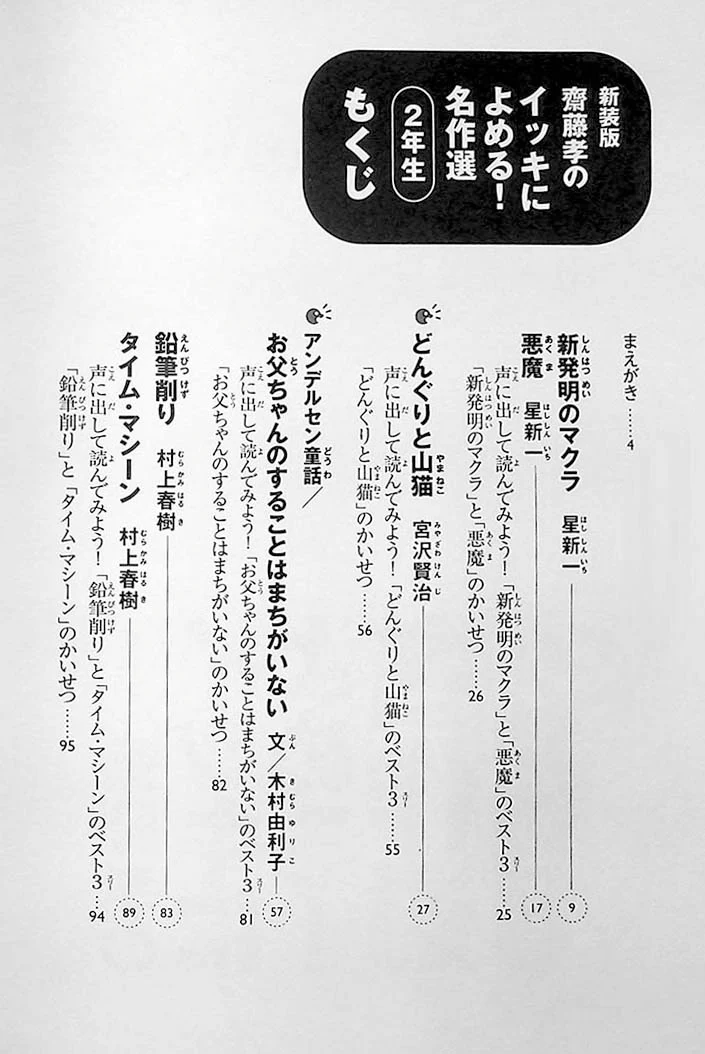 新装版
齋藤孝の
イッキに
よめる！
名作選
2年生
もくじ
まえがき……4
新発明のマクラ 星新一 9
悪魔 星新一 17
声に出して読んでみよう！「新発明のマクラ」と「悪魔」のベスト3……25
「新発明のマクラ」と「悪魔」のかいせつ……26
どんぐりと山猫 宮沢賢治 27
声に出して読んでみよう！「どんぐりと山猫」のベスト3……55
「どんぐりと山猫」のかいせつ……56
アンデルセン童話／
お父ちゃんのすることはまちがいない 文／木村由利子 57
声に出して読んでみよう！「お父ちゃんのすることはまちがいない」のベスト3…81
「お父ちゃんのすることはまちがいない」のかいせつ……82
鉛筆削り 村上春樹 83
タイム・マシーン 村上春樹 89
声に出して読んでみよう！「鉛筆削り」と「タイム・マシーン」のベスト3…94
「鉛筆削り」と「タイム・マシーン」のかいせつ……95